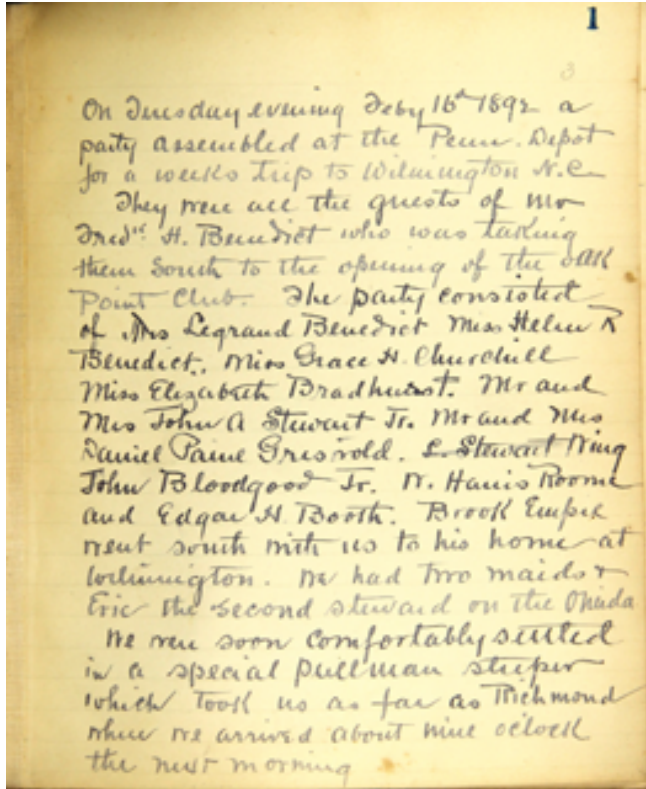 1
3
On Tuesday evening Feby 16th 1892 a
party assembled at the Penn. Depot
for a weeks trip to Wilmington N.C.
They were all the guests of Mr
Fredk. H. Benedict who was taking
them South to the opening of the Oak
Point Club. The party consisted
of Mrs Legrand Benedict Miss Helen R
Benedict, Miss Grace H. Churchill
Miss Elizabeth Bradhurst. Mr and
Mrs John A Stewart Jr. Mr and Mrs
Daniel Paine Griswold. L. Stewart Wing
John Bloodgood Jr. W. Harris Roome
and Edgar H. Booth. Brook Empie
went south with us to his home at
Wilmington. We had two maids &
Eric the second steward on the Oneida
We were soon comfortably settled
in a special pullman sleeper
which took us as far as Richmond
where we arrived about nine oclock
the next morning